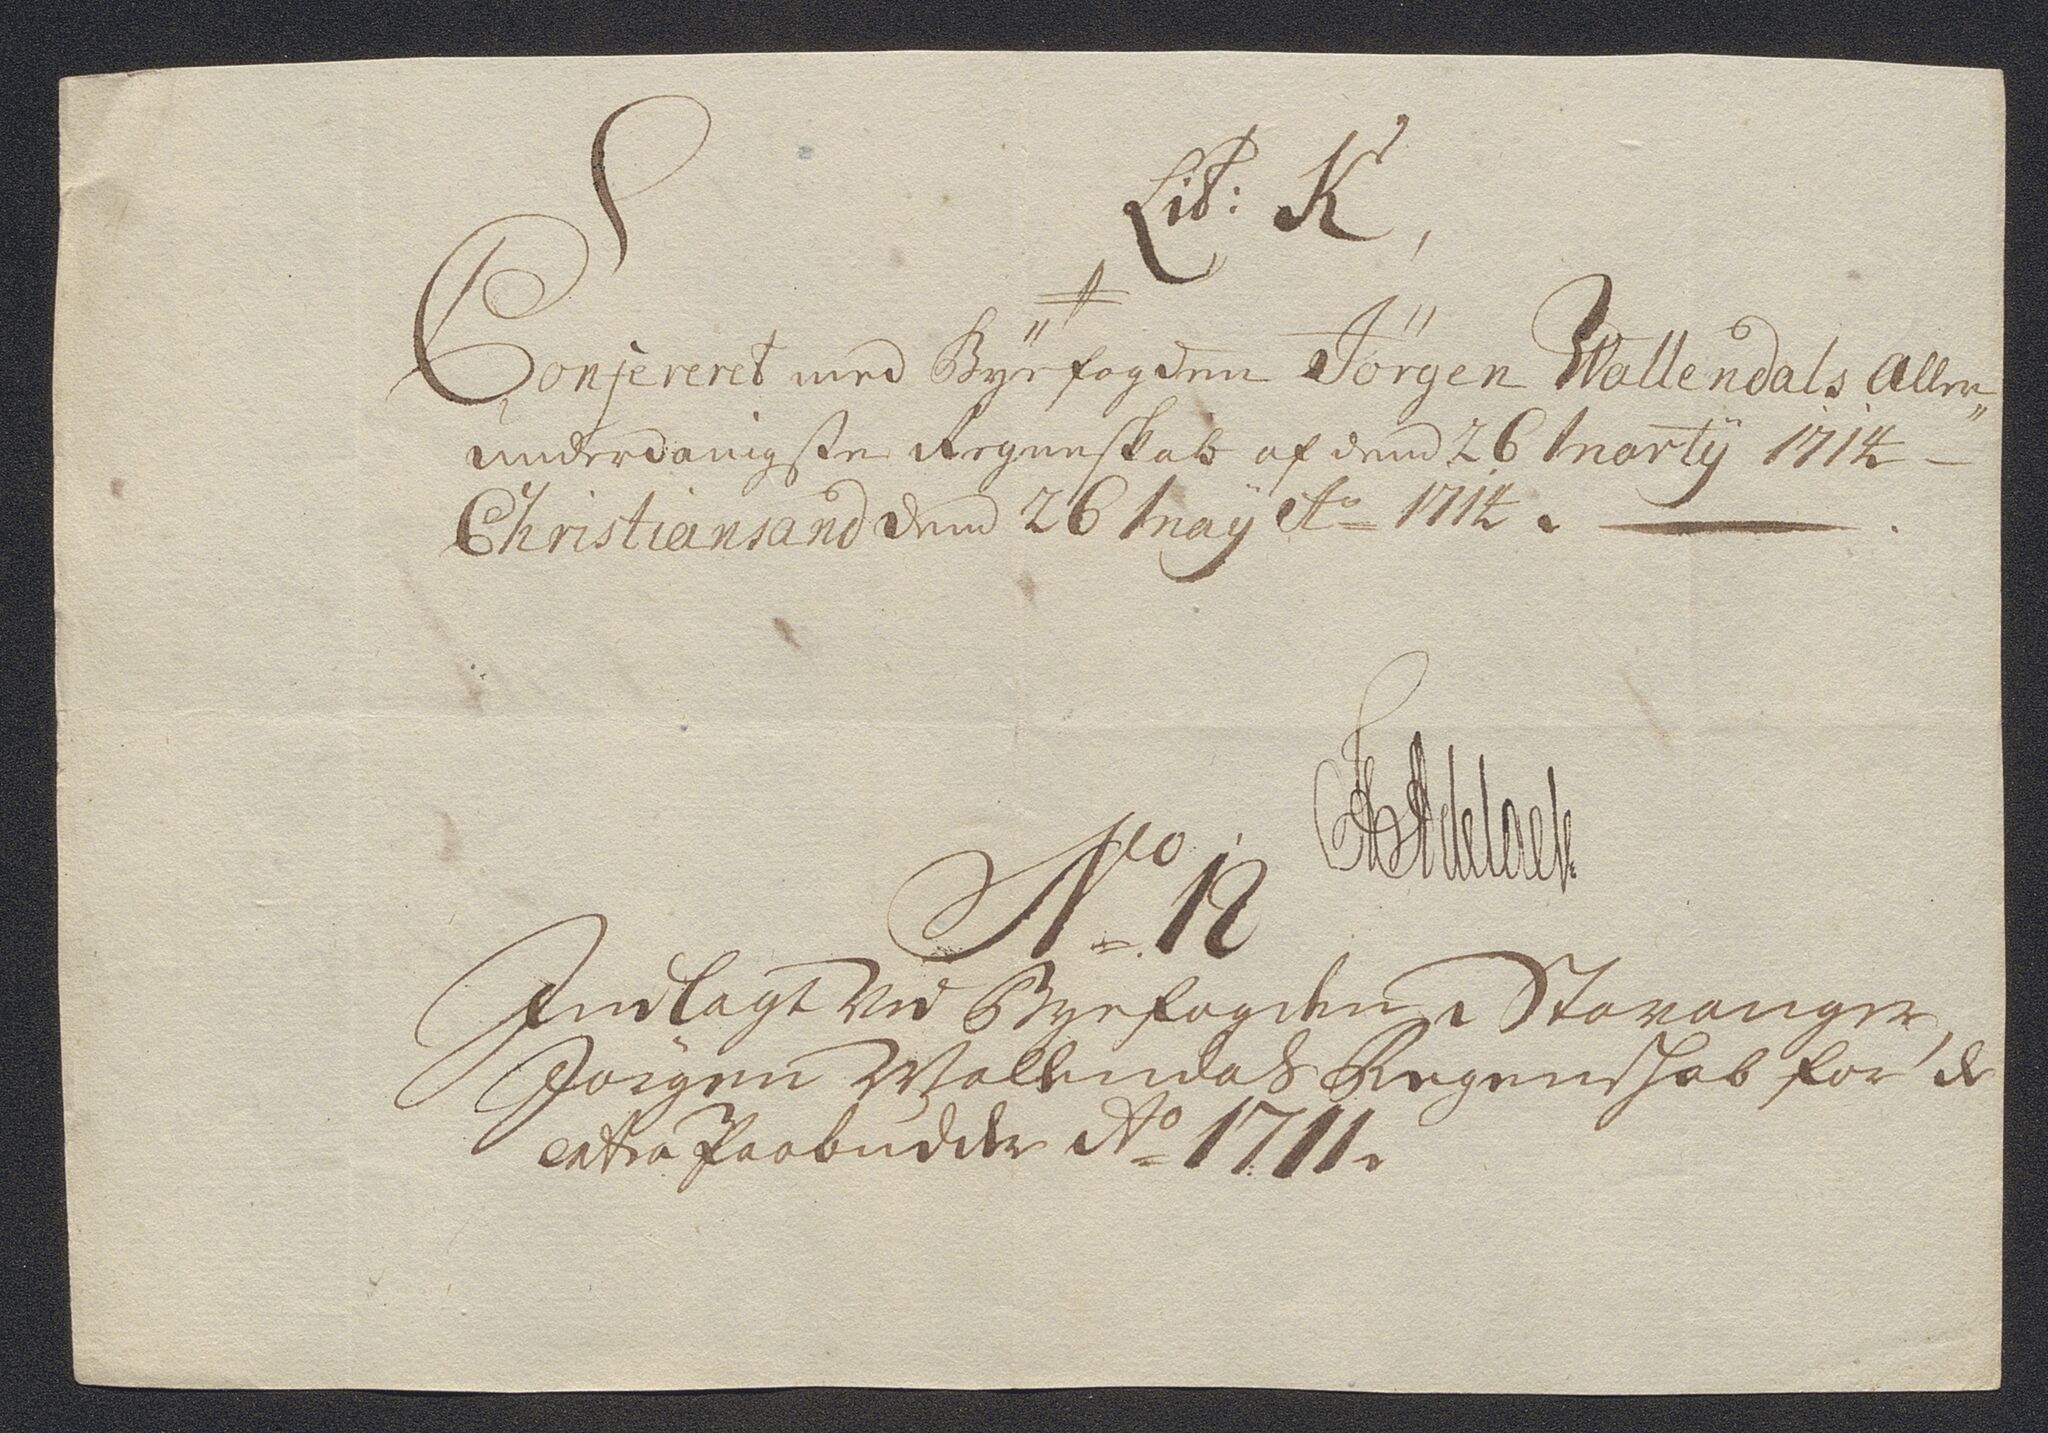 Lit: K,
Confereret med Byefogden Jörgen Wallendals Aller„
underdanigste Regenskab af dend 26 Marty 1714 –
Christiansand dend 26 May Ao 1714.
No. 12
Indlagt ved Byefogden i Stavanger
Jørgen Wallendals Regenskab for de
extra Paabudder Ao 1711.